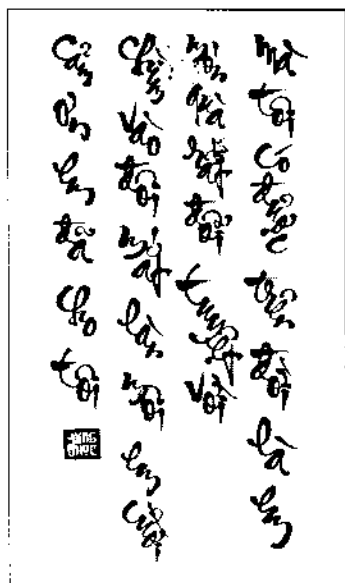 Cảm ơn em đã cho tôi
Chìm vào đôi mắt làn môi em cười
Món quà rất đỗi tuyệt vời
Mà tôi có được trên đời là em